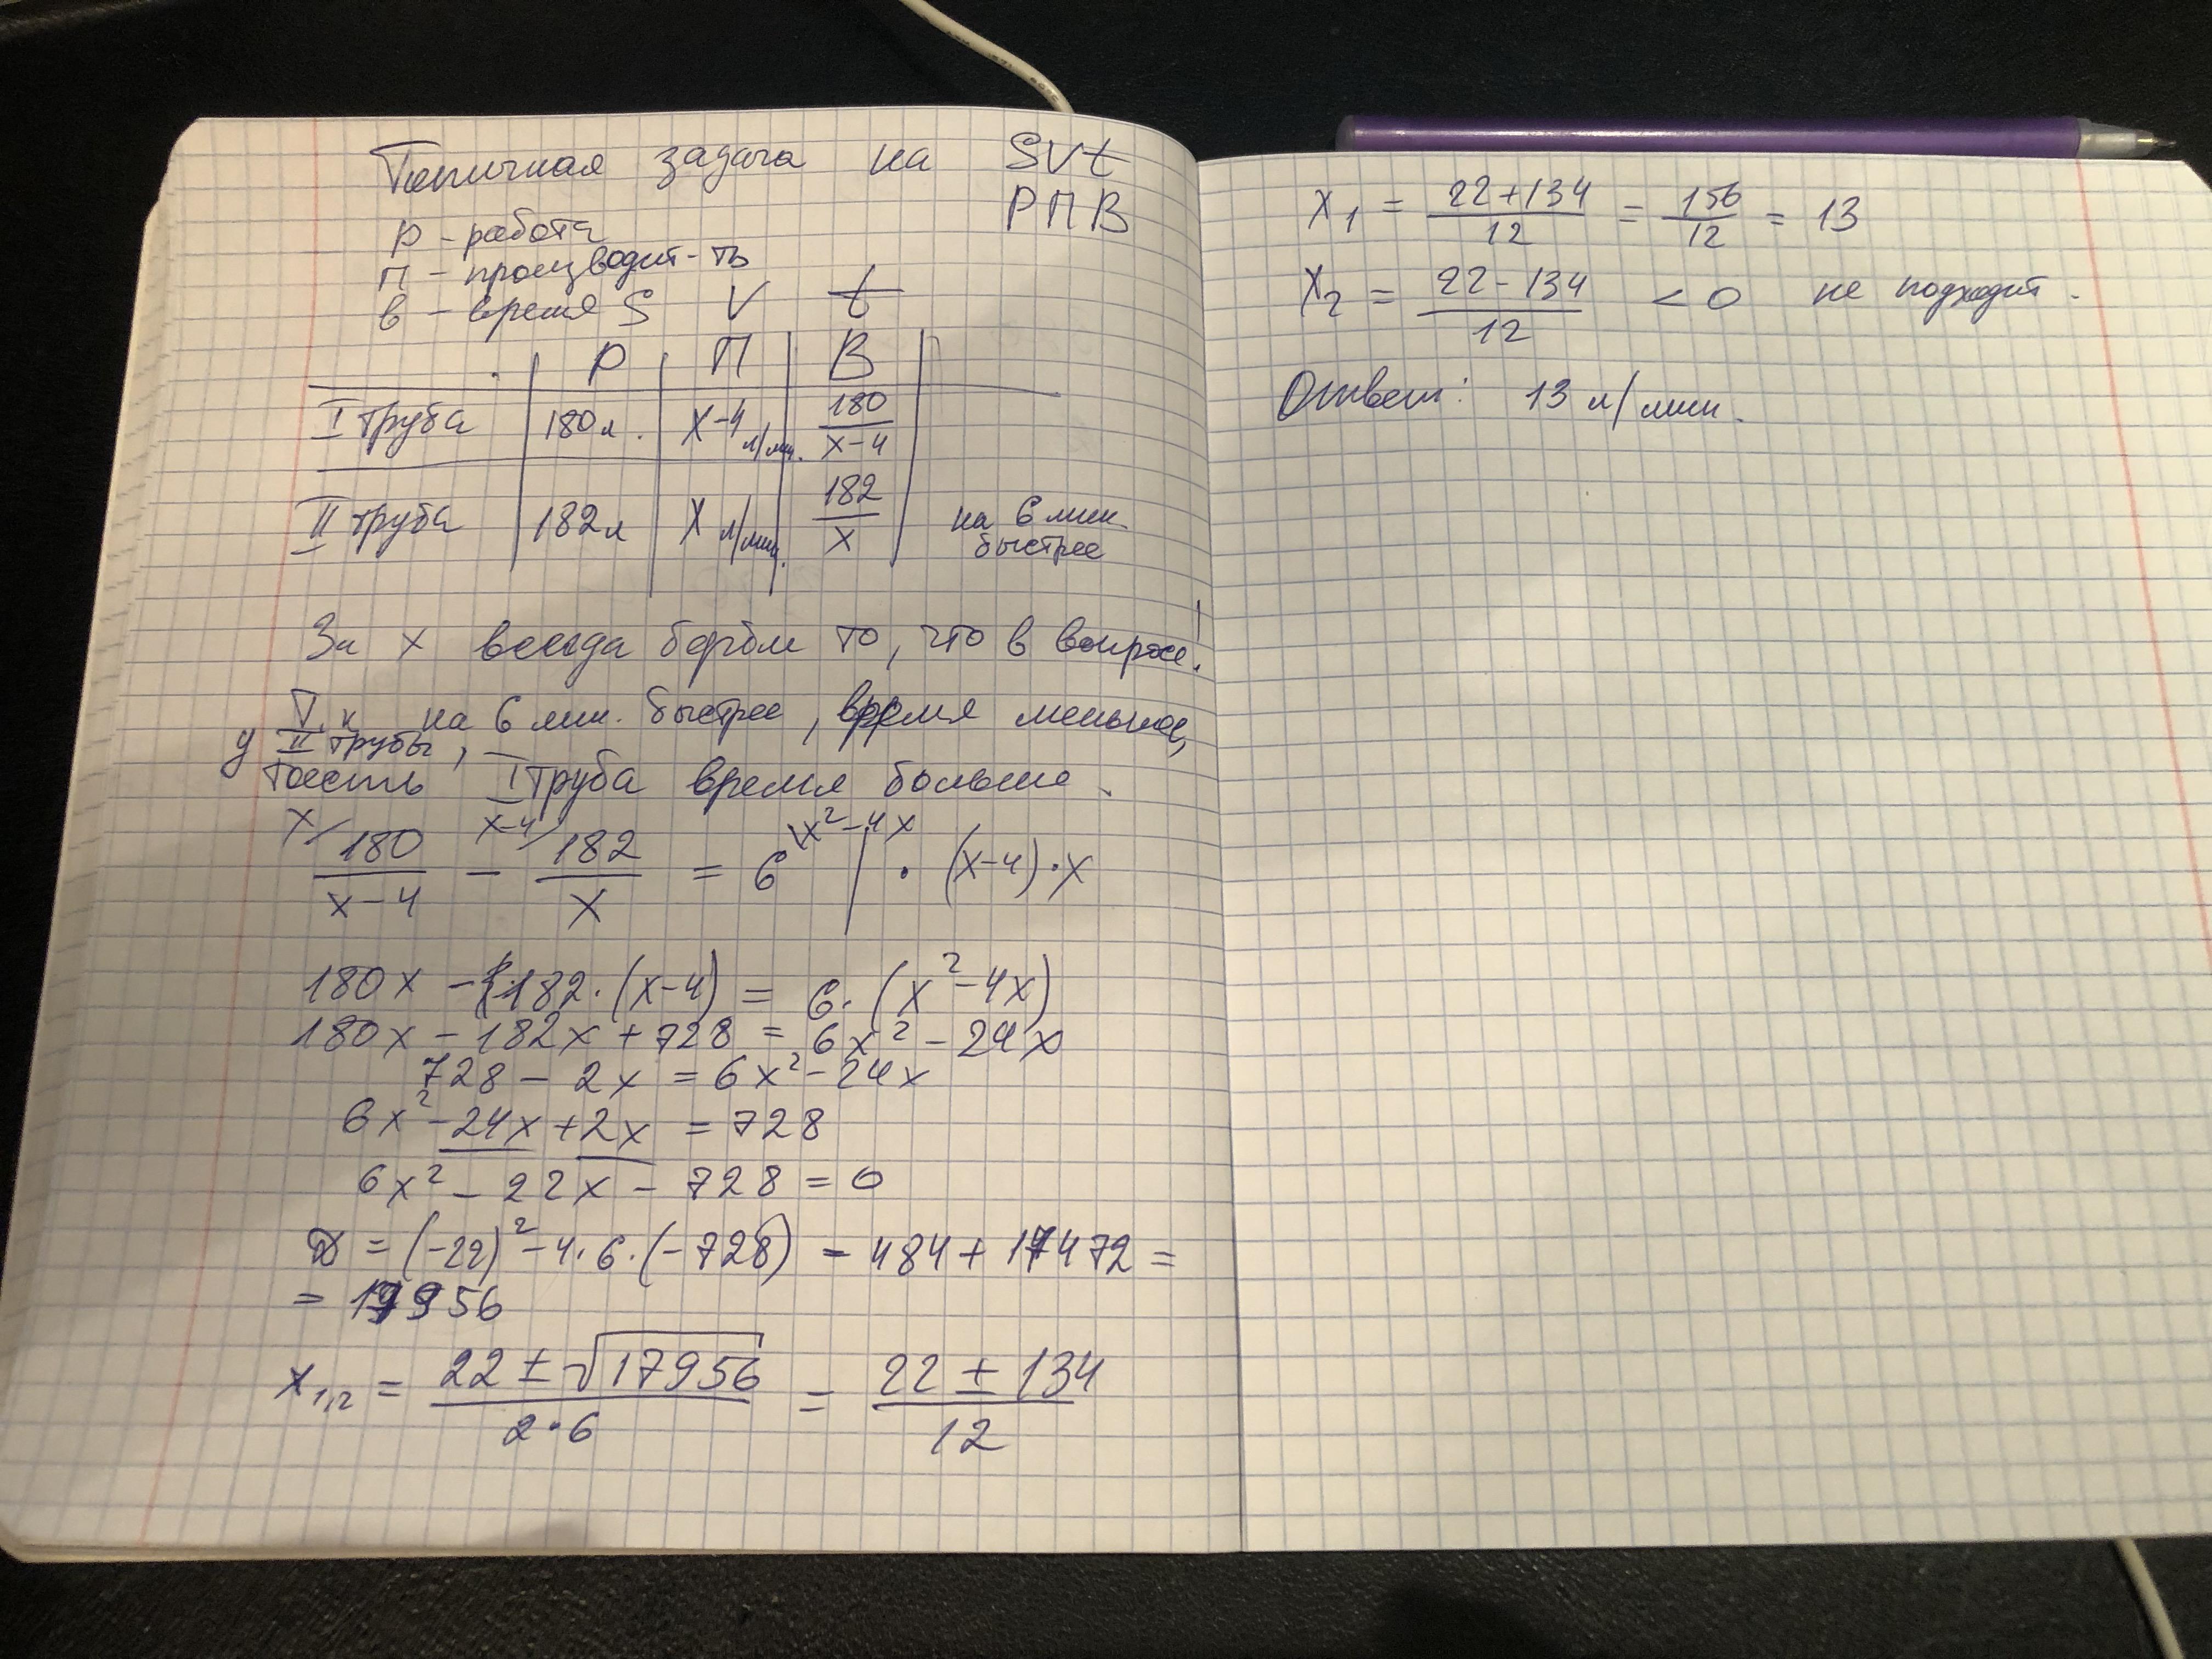 Типичная задача на SVt
РПВ
р - работа
п - производит-ть
в - время S V t
Р П В
I труба 180л. х-4 л/мин. 180/(х-4)
II труба 182л х л/мин. 182/х на 6 мин. быстрее
За х всегда берём то, что в вопросе!
Т.к на 6 мин. быстрее, время меньше,
у II трубы,
тоесть I труба время больше.
х/ 180/(х-4) - х-4/ 182/х = 6 \х²-4х | · (х-4)·х
180х - 182·(х-4) = 6·(х²-4х)
180х - 182х + 728 = 6х² - 24х
728 - 2х = 6х² - 24х
6х² - 24х + 2х = 728
6х² - 22х - 728 = 0
D = (-22)² - 4·6·(-728) = 484 + 17472 =
= 17956
х₁,₂ = (22 ± √17956)/(2·6) = (22 ± 134)/12
х₁ = (22+134)/12 = 156/12 = 13
х₂ = (22-134)/12 < 0 не подходит.
Ответ: 13 л/мин.